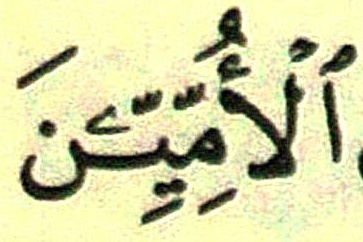 ٱلْأُمِّيِّـۧنَ